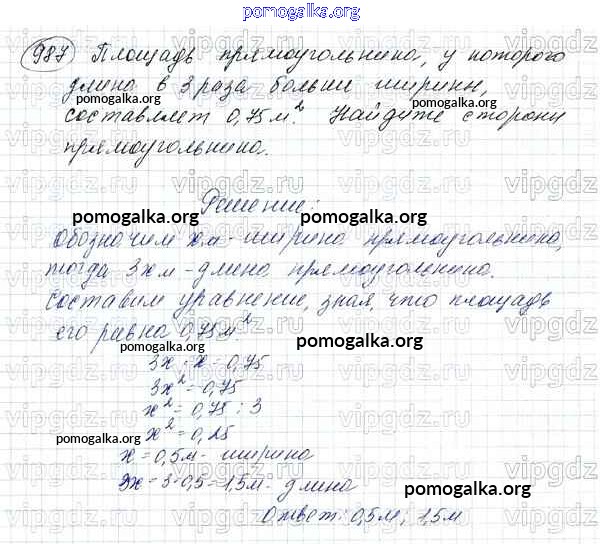 pomogalka.org
987 Площадь прямоугольника, у которого
длина в 3 раза больше ширины,
pomogalka.org pomogalka.org
составляет 0,75 м². Найдите стороны
прямоугольника.
Решение:
pomogalka.org pomogalka.org
Обозначим x м - ширина прямоугольника,
тогда 3x м - длина прямоугольника.
Составим уравнение, зная, что площадь
его равна 0,75 м²
pomogalka.org pomogalka.org
3x · x = 0,75
3x² = 0,75
x² = 0,75 : 3
pomogalka.org
x² = 0,25
x = 0,5 м - ширина
pomogalka.org
3x = 3·0,5 = 1,5 м - длина
pomogalka.org
Ответ: 0,5 м; 1,5 м